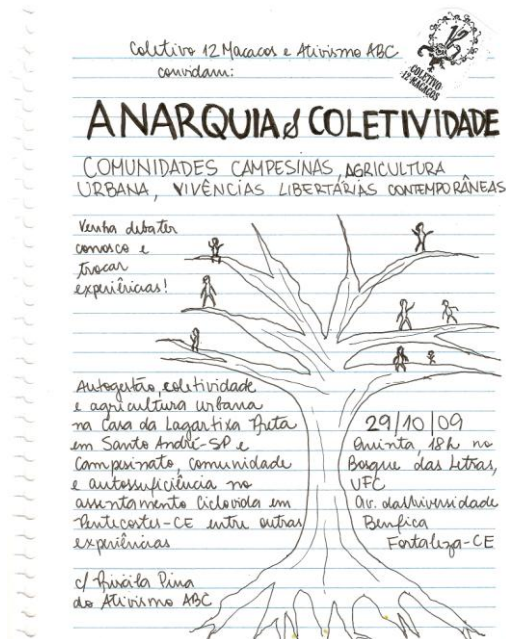 Coletivo 12 Macacos e Ativismo ABC
convidam:
COLETIVO
12 MACACOS
ANARQUIA & COLETIVIDADE
COMUNIDADES CAMPESINAS, AGRICULTURA
URBANA, VIVÊNCIAS LIBERTÁRIAS CONTEMPORÂNEAS
Venha debater
conosco e
trocar
experiências!
Autogestão, coletividade
e agricultura urbana
na Casa da Lagartixa Preta
em Santo André-SP e
Campesinato, comunidade
e autossuficiência no
assentamento Ciclovida em
Pentecostes-CE entre outras
experiências
c/ Priscila Pina
do Ativismo ABC
29/10/09
Quinta, 18h no
Bosque das Letras,
UFC
Av. da Universidade
Benfica
Fortaleza-CE